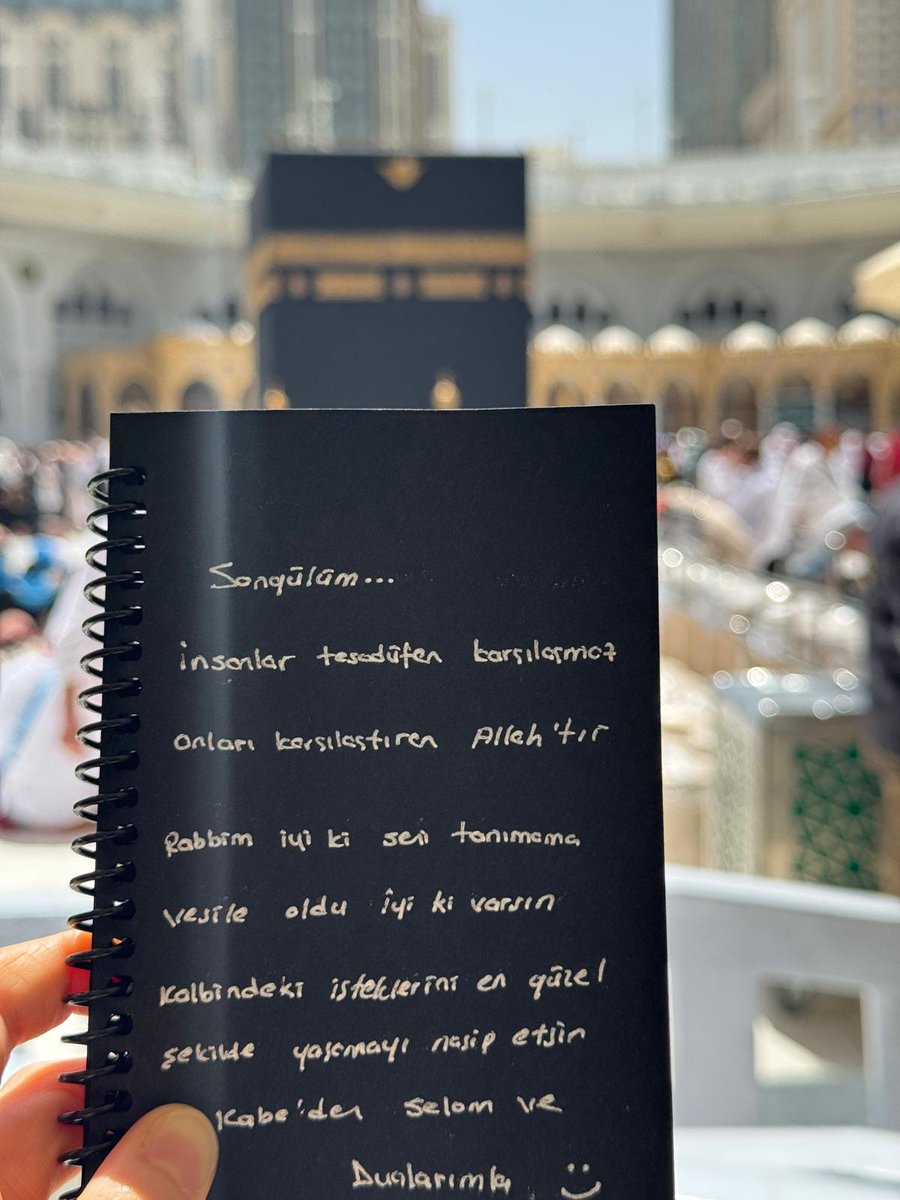 Songülüm...
İnsanlar tesadüfen karşılaşmaz
Onları karşılaştıran Allah'tır
Rabbim iyi ki seni tanımama
vesile oldu iyi ki varsın
Kalbindeki isteklerini en güzel
şekilde yaşamayı nasip etsin
Kabe'den Selam ve
Dualarımla :)